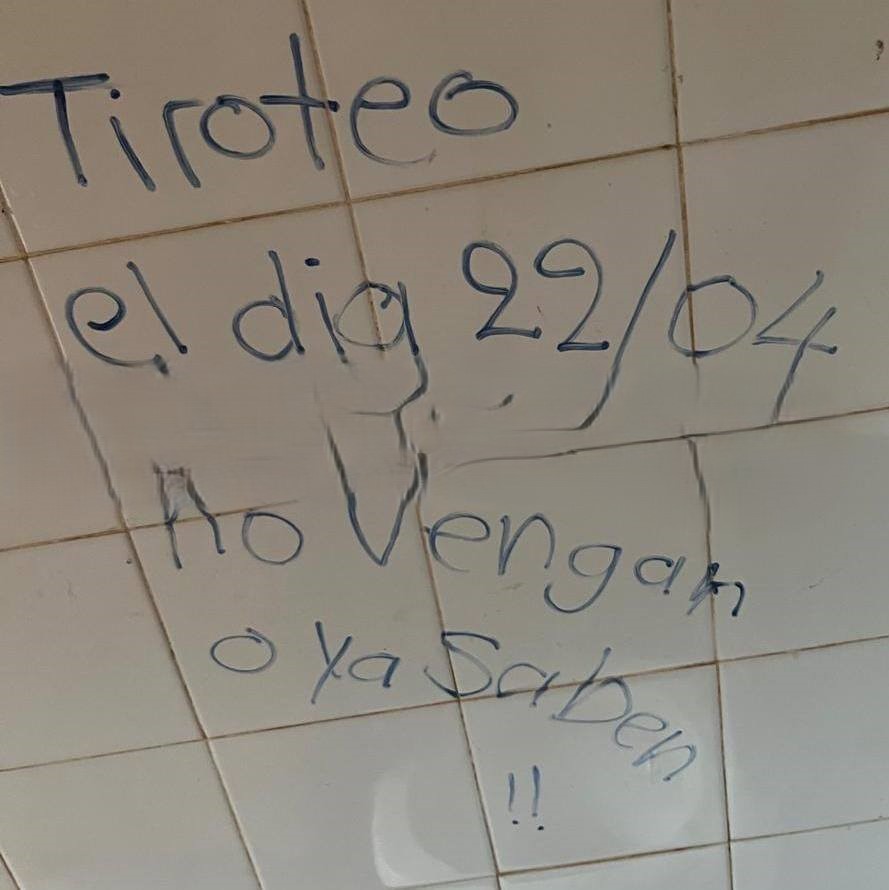 Tiroteo
el dia 22/04
no Vengan
o ya saben
!!